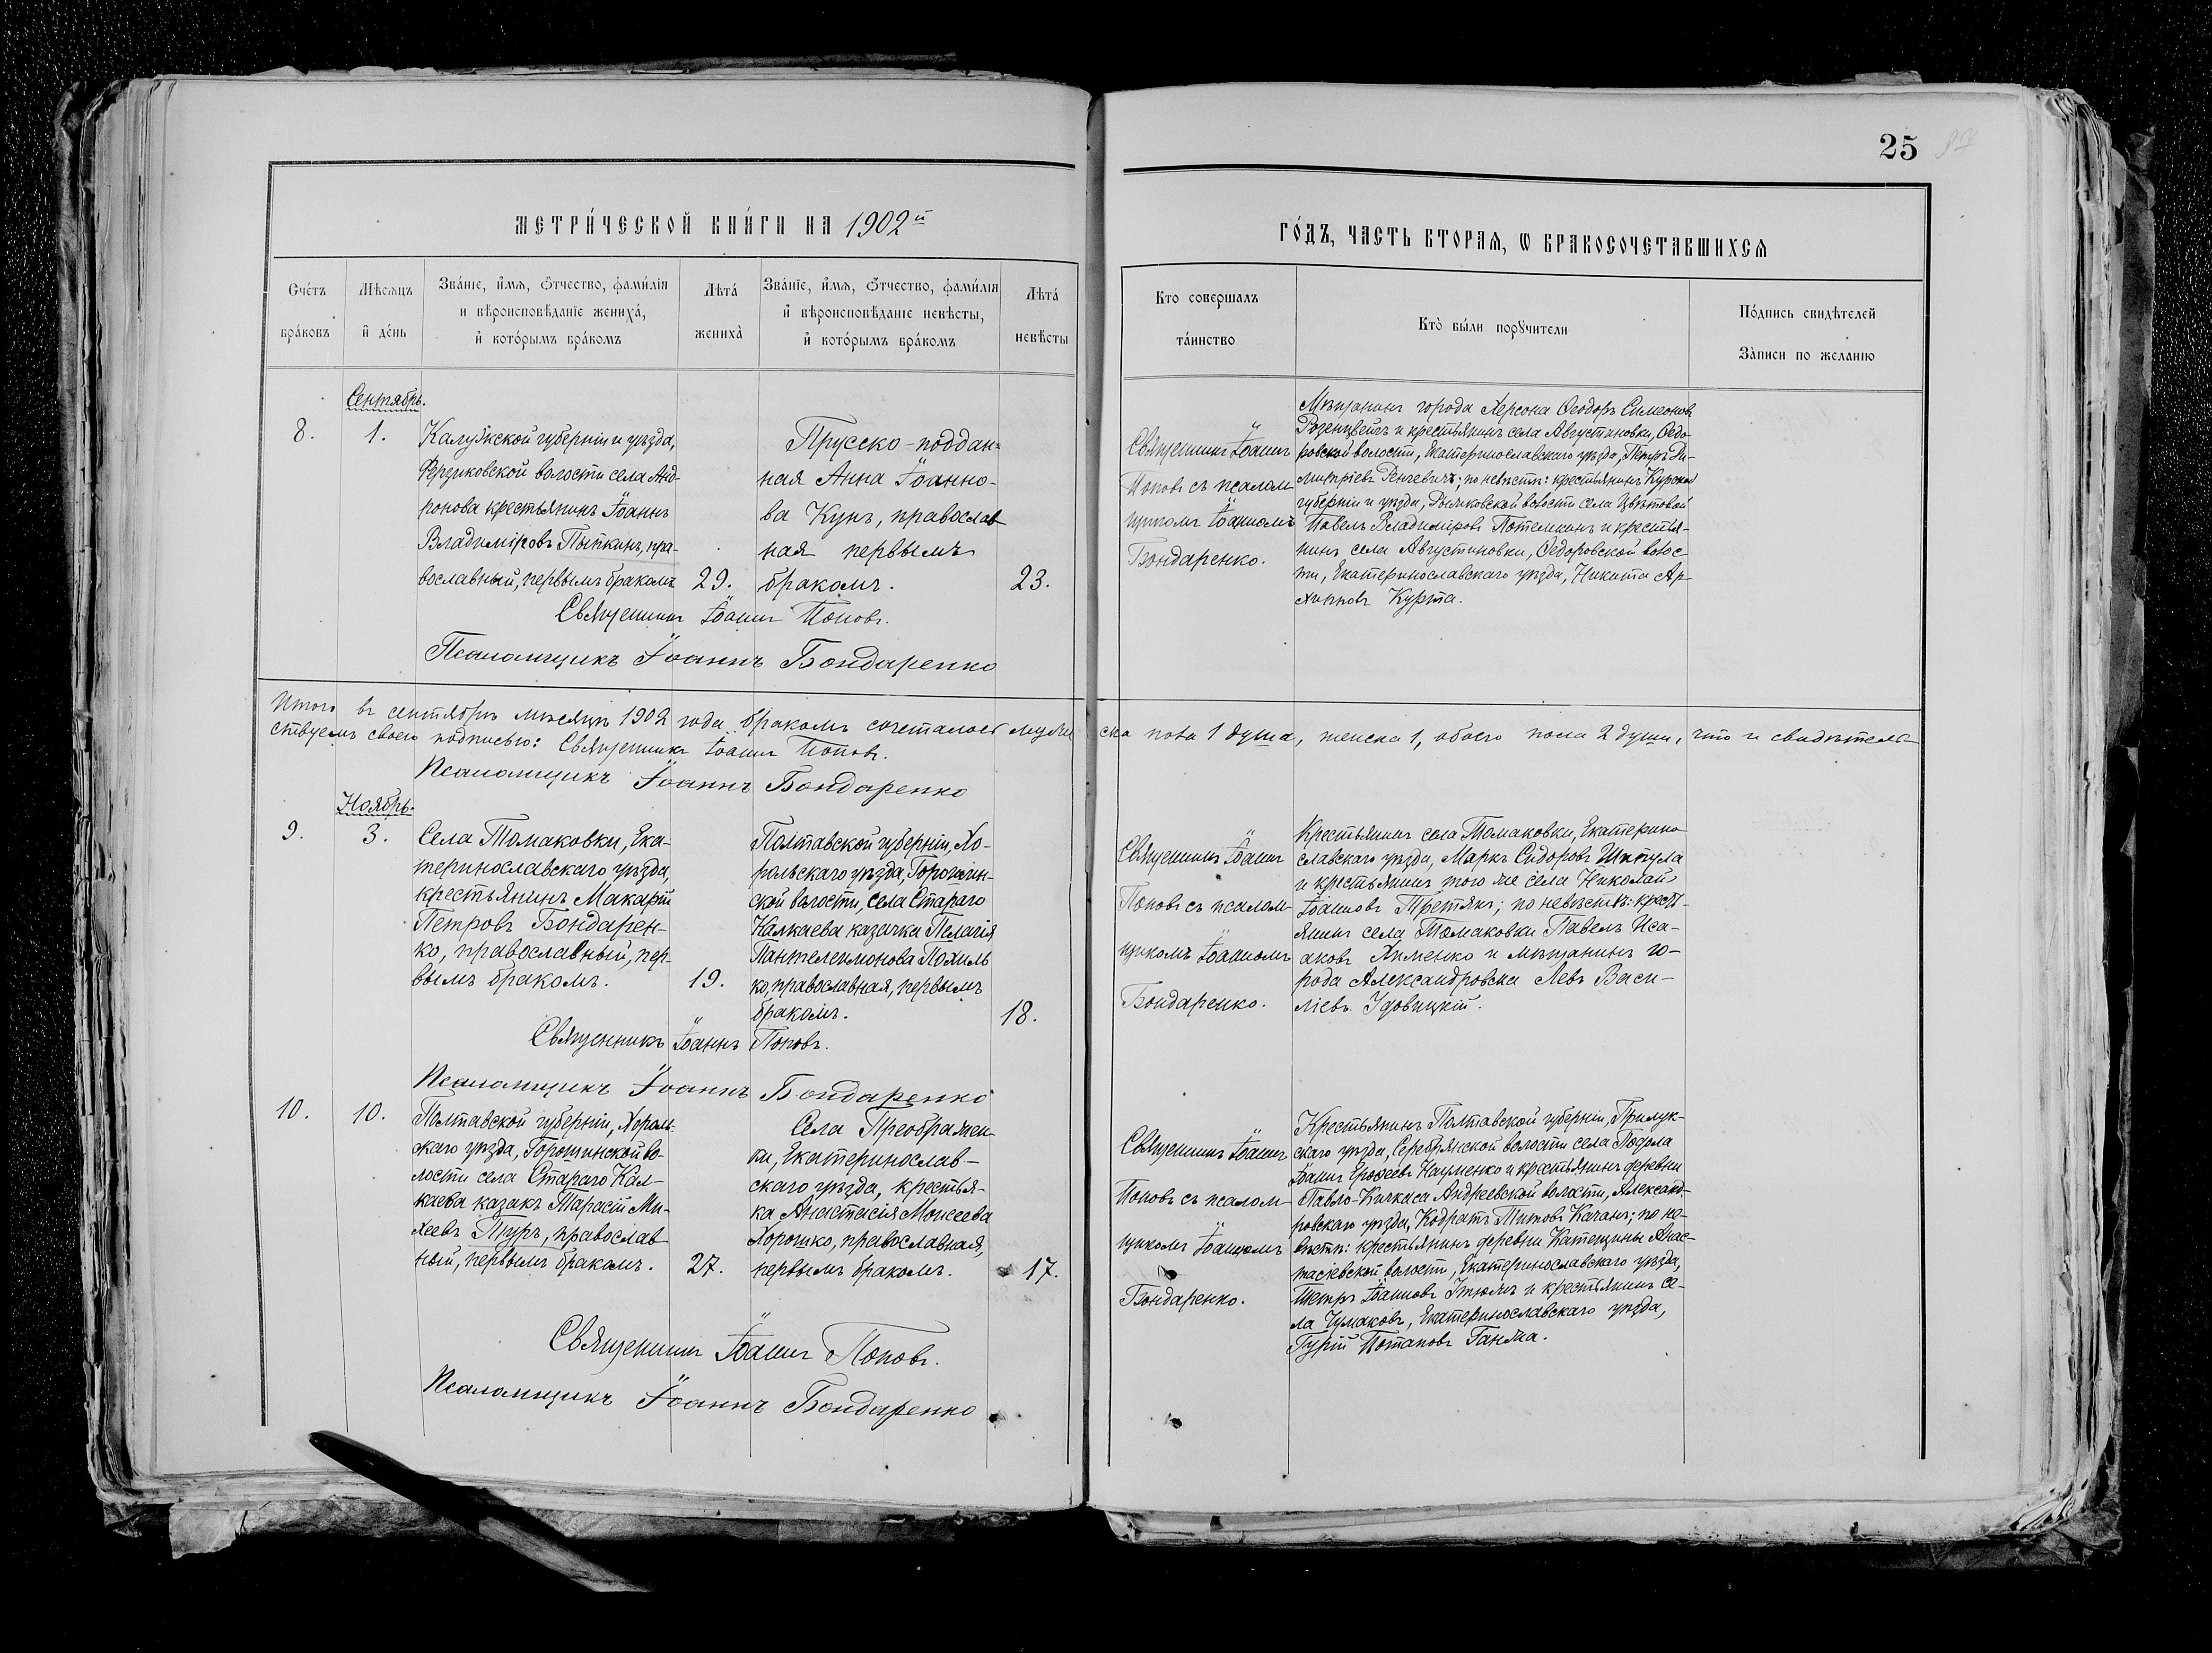 25
МЕТРИ́ЧЕСКОЙ КНИ́ГИ НА 1902й
ГО́ДЪ, ЧАСТЬ ВТОРАѦ, Ѡ БРАКОСОЧЕТАВШИХСѦ
Сче́тъ браковъ
Мѣсѧцъ и҆ де́нь
Зва́нїе, и҆́мѧ, ѻ҆́тчество, фами́лїѧ и вѣроисповѣ́данїе жениха̀, и҆ кото́рымъ бра́комъ
Лѣта̀ жениха̀
Зва́нїе, и҆́мѧ, ѻ҆́тчество, фами́лїѧ и҆ вѣроисповѣ́данїе невѣ́сты, и҆ кото́рымъ бра́комъ
Лѣта̀ невѣ́сты
Кто совершалъ та́инство
Кто̀ бы́ли порꙋчители
По́дпись свидѣ́телей За́писи по желанїю
Сентябрь.
8.
1.
Калужской губерніи и уѣзда,
Ферзиковской волости села Анд-
ронова крестьянинъ Іоаннъ
Владиміровъ Пыпкинъ, пра-
вославный, первымъ бракомъ
29.
Прусско-поддан-
ная Анна Іоанно-
ва Кунъ, православ
ная первымъ
бракомъ.
23.
Священникъ Іоаннъ
Поповъ съ псалом
щикомъ Іоанномъ
Бондаренко.
Мѣщанинъ города Херсона Ѳеодоръ Симеоновъ
Розенцвейгъ и крестьянинъ села Августиновки, Ѳедо-
ровской волости, Екатеринославскаго уѣзда, Петръ Ди-
митріевъ Ренгевичъ; по невѣстѣ: крестьянинъ Курской
губерніи и уѣзда, Рышковской волости села Цвѣтовой
Павелъ Владиміровъ Потемкинъ и крестья-
нинъ села Августиновки, Ѳедоровской волос-
ти, Екатеринославскаго уѣзда, Никита Ар-
хиповъ Курта.
Священникъ Іоаннъ Поповъ.
Псаломщикъ Іоаннъ Бондаренко
Итого въ сентябрѣ мѣсяцѣ 1902 года бракомъ сочеталось мужи ска пола 1 душа, женска 1, обоего пола 2 души, что и свидѣтель-
ствуемъ своею подписью: Священникъ Іоаннъ Поповъ.
Псаломщикъ Іоаннъ Бондаренко
Ноябрь.
9.
3.
Села Томаковки, Ека-
теринославскаго уѣзда,
крестьянинъ Макарій
Петровъ Бондарен-
ко, православный, пер-
вымъ бракомъ.
19.
Полтавской губерніи, Хо-
рольскаго уѣзда, Горошин-
ской волости, села Стараго
Калкаева казачка Пелагія
Пантелеимонова Похиль
ко, православная, первымъ
бракомъ.
18.
Священникъ Іоаннъ
Поповъ съ псалом-
щикомъ Іоанномъ
Бондаренко.
Крестьянинъ села Томаковки, Екатерино
славскаго уѣзда, Маркъ Сидоровъ Шкпула
и крестьянинъ того же села Николай
Іоанновъ Третякъ; по невѣстѣ: кресть-
янинъ села Томаковки Павелъ Иса-
аковъ Хименко и мѣщанинъ го-
рода Александровска Левъ Васи-
ліевъ Удовицкій.
Священникъ Іоаннъ Поповъ.
Псаломщикъ Іоаннъ Бондаренко
10.
10.
Полтавской губерніи, Хороль
скаго уѣзда, Горошинской во-
лости села Стараго Кал-
каева казакъ Тарасій Ми-
хеевъ Туръ, православ
ный, первымъ бракомъ.
27.
Села Преображен-
ки, Екатеринослав-
скаго уѣзда, крестья-
ка Анастасія Моисеева
Хорошко, православная,
первымъ бракомъ.
17.
Священникъ Іоаннъ
Поповъ съ псалом-
щикомъ Іоанномъ
Бондаренко.
Крестьянинъ Полтавской губерніи, Прилук-
скаго уѣзда, Серебрянской волости села Подола
Іоаннъ Ероѳеевъ Науменко и крестьянинъ деревни
Павло-Кичкаса Андреевской волости, Александ-
ровскаго уѣзда, Кодратъ Титовъ Качанъ; по не-
вѣстѣ: крестьянинъ деревни Катещины Анас-
тасіевской волости, Екатеринославскаго уѣзда,
Петръ Іоанновъ и крестьянинъ се-
ла Чумаковъ, Екатеринославскаго уѣзда,
Гурій Потаповъ Ганжа.
Священникъ Іоаннъ Поповъ.
Псаломщикъ Іоаннъ Бондаренко